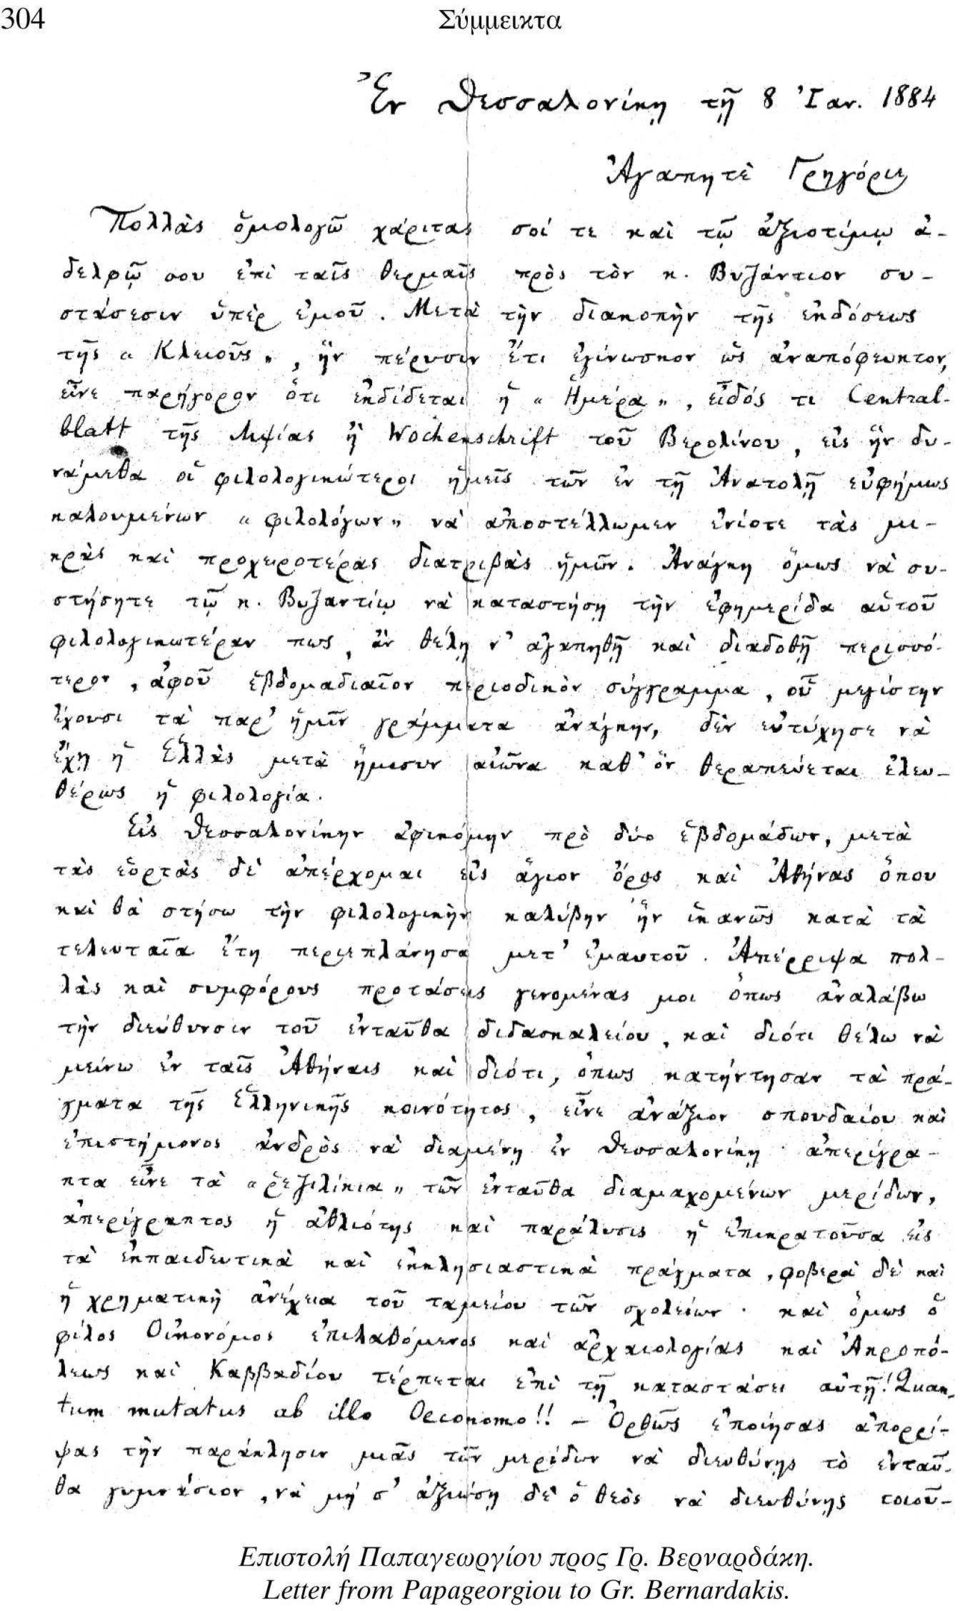 304 Σύμμεικτα
Ἐν Θεσσαλονίκῃ τῇ 8 Ἰαν. 1884
Ἀγαπητὲ Γρηγόριε,
Πολλὰς ὁμολογῶ χάριτας σοί τε καὶ τῷ ἀξιοτίμῳ ἀ-
δελφῷ σου ἐπὶ ταῖς θερμαῖς πρὸς τὸν κ. Βυζάντιον συ-
στάσεσιν ὑπὲρ ἐμοῦ. Μετὰ τὴν διακοπὴν τῆς ἐκδόσεως
τῆς « Κλειοῦς », ἣν πέρυσιν ἔτι ἐγίνωσκον ὡς ἀναπόφευκτον,
εἶνε παρήγορον ὅτι ἐκδίδεται ἡ « Ἡμέρα », εἶδός τι Central-
blatt τῆς Λιψίας ἢ Wochenschrift τοῦ Βερολίνου, εἰς ἣν δυ-
νάμεθα οἱ φιλολογικώτεροι ἡμεῖς τῶν ἐν τῇ Ἀνατολῇ εὐφήμως
καλουμένων « φιλολόγων » νὰ ἀποστέλλωμεν ἐνίοτε τὰς μι-
κρὰς καὶ προχειροτέρας διατριβὰς ἡμῶν. Ἀνάγκη ὅμως νὰ συ-
στήσητε τῷ κ. Βυζαντίῳ νὰ καταστήσῃ τὴν ἐφημερίδα αὑτοῦ
φιλολογικωτέραν πως, ἂν θέλῃ ν' ἀγαπηθῇ καὶ διαδοθῇ περισσό-
τερον, ἀφοῦ ἑβδομαδιαῖον περιοδικὸν σύγγραμμα, οὗ μεγίστην
ἔχουσι τὰ παρ' ἡμῖν γράμματα ἀνάγκην, δὲν εὐτύχησε νὰ
ἔχῃ ἡ Ἑλλὰς μετὰ ἥμισυν αἰῶνα καθ' ὃν θεραπεύεται ἐλευ-
θέρως ἡ φιλολογία.
Εἰς Θεσσαλονίκην ἀφικόμην πρὸ δύο ἑβδομάδων, μετὰ
τὰς ἑορτὰς δὲ ἀπέρχομαι εἰς ἅγιον ὄρος καὶ Ἀθήνας ὅπου
καὶ θὰ στήσω τὴν φιλολογικὴν καλύβην ἣν ἱκανῶς κατὰ τὰ
τελευταῖα ἔτη περιεπλάνησα μετ' ἐμαυτοῦ. Ἀπέρριψα πολ-
λὰς καὶ συμφόρους προτάσεις γενομένας μοι ὅπως ἀναλάβω
τὴν διεύθυνσιν τοῦ ἐνταῦθα διδασκαλείου, καὶ διότι θέλω νὰ
μείνω ἐν ταῖς Ἀθήναις καὶ διότι, ὅπως κατήντησαν τὰ πρά-
γματα τῆς Ἑλληνικῆς κοινότητος, εἶνε ἀνάξιον σπουδαίου καὶ
ἐπιστήμονος ἀνδρὸς νὰ διαμένῃ ἐν Θεσσαλονίκῃ · ἀπερίγρα-
πτα εἶνε τὰ « ῥεζιλίκια » τῶν ἐνταῦθα διαμαχομένων μερίδων,
ἀπερίγραπτος ἡ ἀθλιότης καὶ παράλυσις ἡ ἐπικρατοῦσα εἰς
τὰ ἐκπαιδευτικὰ καὶ ἐκκλησιαστικὰ πράγματα, φοβερὰ δὲ καὶ
ἡ χρηματικὴ ἀνέχεια τοῦ ταμείου τῶν σχολείων · καὶ ὅμως ὁ
φίλος Οἰκονόμος ἐπιλαθόμενος καὶ ἀρχαιολογίας καὶ Ἀκροπό-
λεως καὶ Καββαδίου τέρπεται ἐπὶ τῇ καταστάσει αὐτῇ! Quan-
tum mutatus ab illo Oeconomo!! – Ὀρθῶς ἐποίησας ἀπορρί-
ψας τὴν παράκλησιν μιᾶς τῶν μερίδων νὰ διευθύνῃς τὸ ἐνταῦ-
θα γυμνάσιον, νὰ μή σ' ἀξιώσῃ δὲ ὁ θεὸς νὰ διευθύνῃς τοιοῦ-
Επιστολή Παπαγεωργίου προς Γρ. Βερναρδάκη.
Letter from Papageorgiou to Gr. Bernardakis.